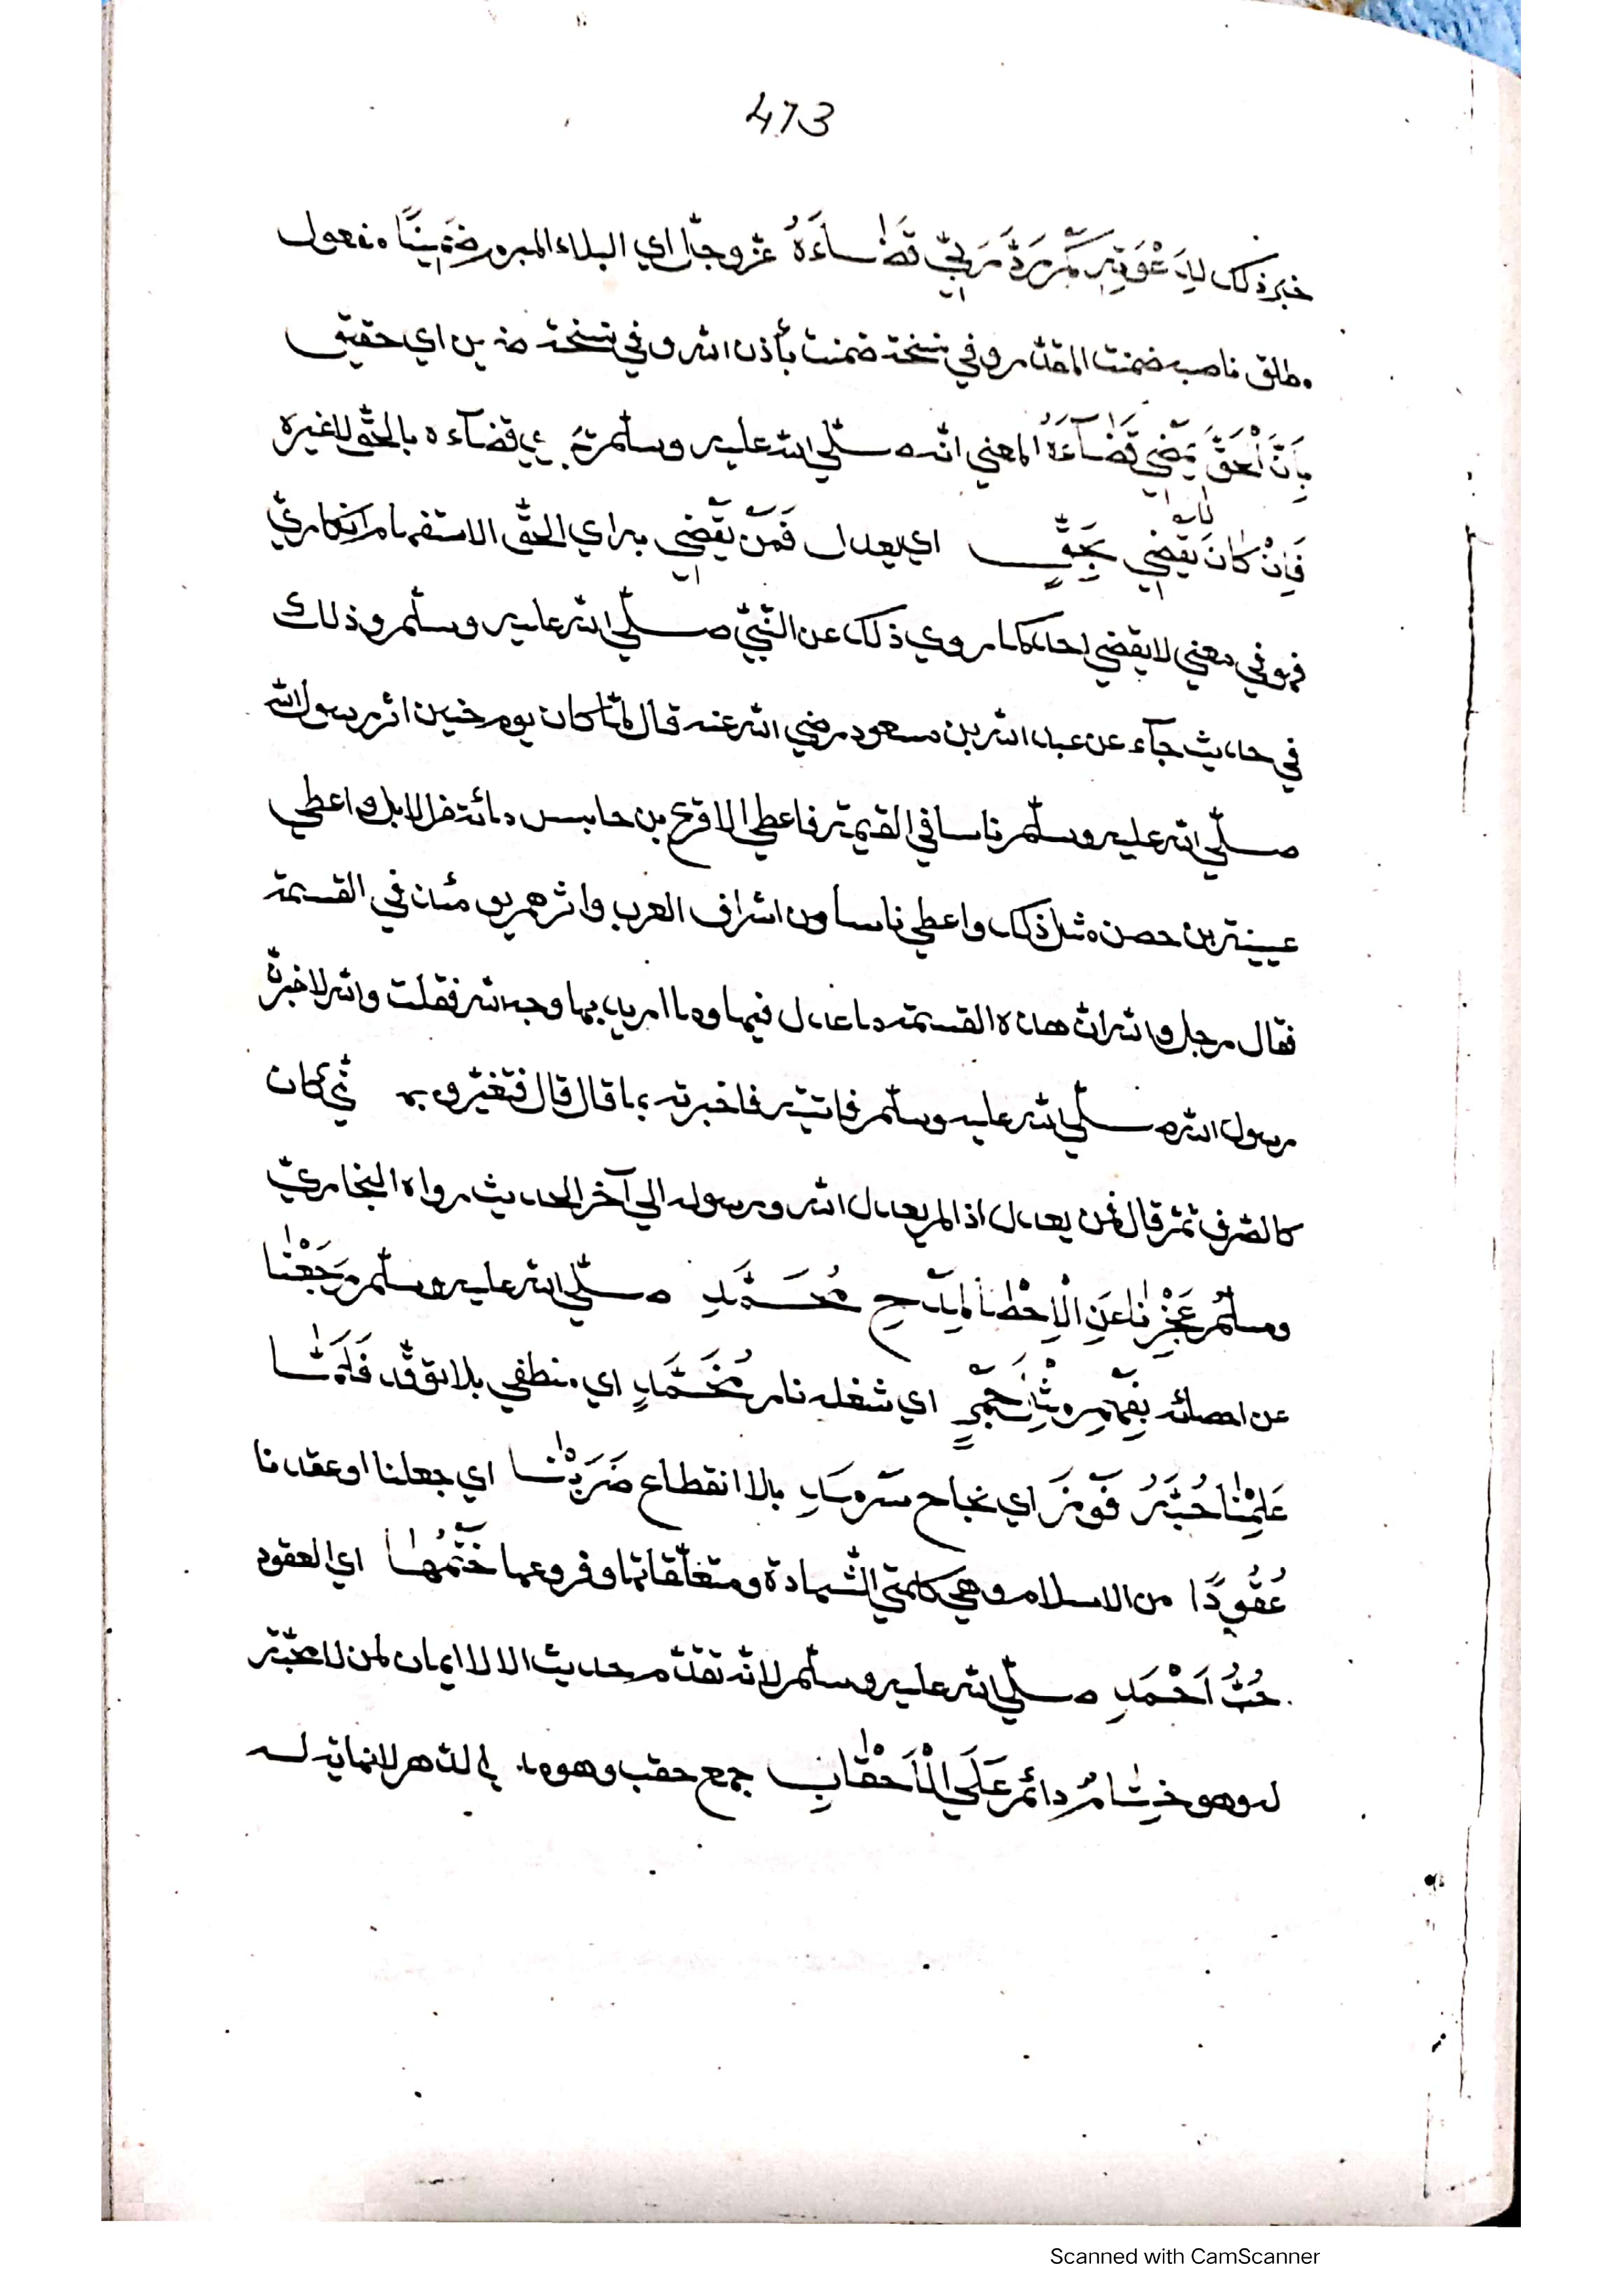 473
خبر ذلك لِدَعْوَتِهِ كَمْ رَدَّ رَبِّي قَضَاءَهُ عزّ وجلّ اي البلاء المبرور ضَمِينًا مفعول
مطلق ناصبه ضمنت المقدّر وفي نسخة ضمنت بأذن الله وفي نسخة ضمين اي حقيق
بِأَنَّ الْحَقَّ يَقْضِي قَضَآءَهُ المعني انّه صلّي الله عليه وسلّم قضآءه بالحقّ لا غيره
فَاِنْ كَانَ يَقْضِي بِحَقٍّ اي بعدل فَمَنْ يَقْضِي به اي الحقّ الاستفهام انكاريّ
فهو في معني لا يقضي احد كما روي ذلك عن النّبيّ صلّي الله عليه وسلّم وذلك
في حديث جآء عن عبد الله بن مسعود رضي الله عنه قال لمّا كان يوم حنين اثر رسول الله
صلّي الله عليه وسلّم ناسا في القيمة فاعطي الاقرع بن حابس مائة من الابل واعطي
عيينة بن حصن مثل ذلك واعطي ناسا من اشراف العرب واثرهم يومئذ في القسمة
فقال رجل والله انّ هذه القسمة ما عدل فيها وما اريد بها وجه الله فقلت والله لاخبرنّ
رسول الله صلّي الله عليه وسلّم فاتيته فاخبرته بما قال قال فتغيّر وجهه كان
كالصّرف ثمّ قال فمن يعدل اذا لم يعدل الله ورسوله الي آخر الحديث رواه البخاريّ
ومسلم عَجْزُنَا عَنِ الْاِحْصَا لِمَدْحِ مُحَمَّدِ صلّي الله عليه وسلّم وَرَجَعْنَا
عن احصائه اي شغله نار مُخَمَّدٍ اي منطفي بلا توقّد فَلَمَّا
عَلِمْنَا حُبَّهُ فَوْزَ اي نجاح سَرْمَدِ بلا انقطاع ضَرَبْنَا اي جعلنا او عقدنا
عُقُودًا من الاسلام وهي كلمتي الشّهادة ومتعلّقاتها وفروعها خَتْمُهَا اي العقود
حُبُّ اَحْمَدِ صلّي الله عليه وسلّم لانّه تقدّم حديث الا لا ايمان لمن لا محبّة
له وهو خِتَامٌ دائم عَلَي الْاَحْقَابِ جمع حقب وهو الدّهر لا نهاية له
Scanned with CamScanner